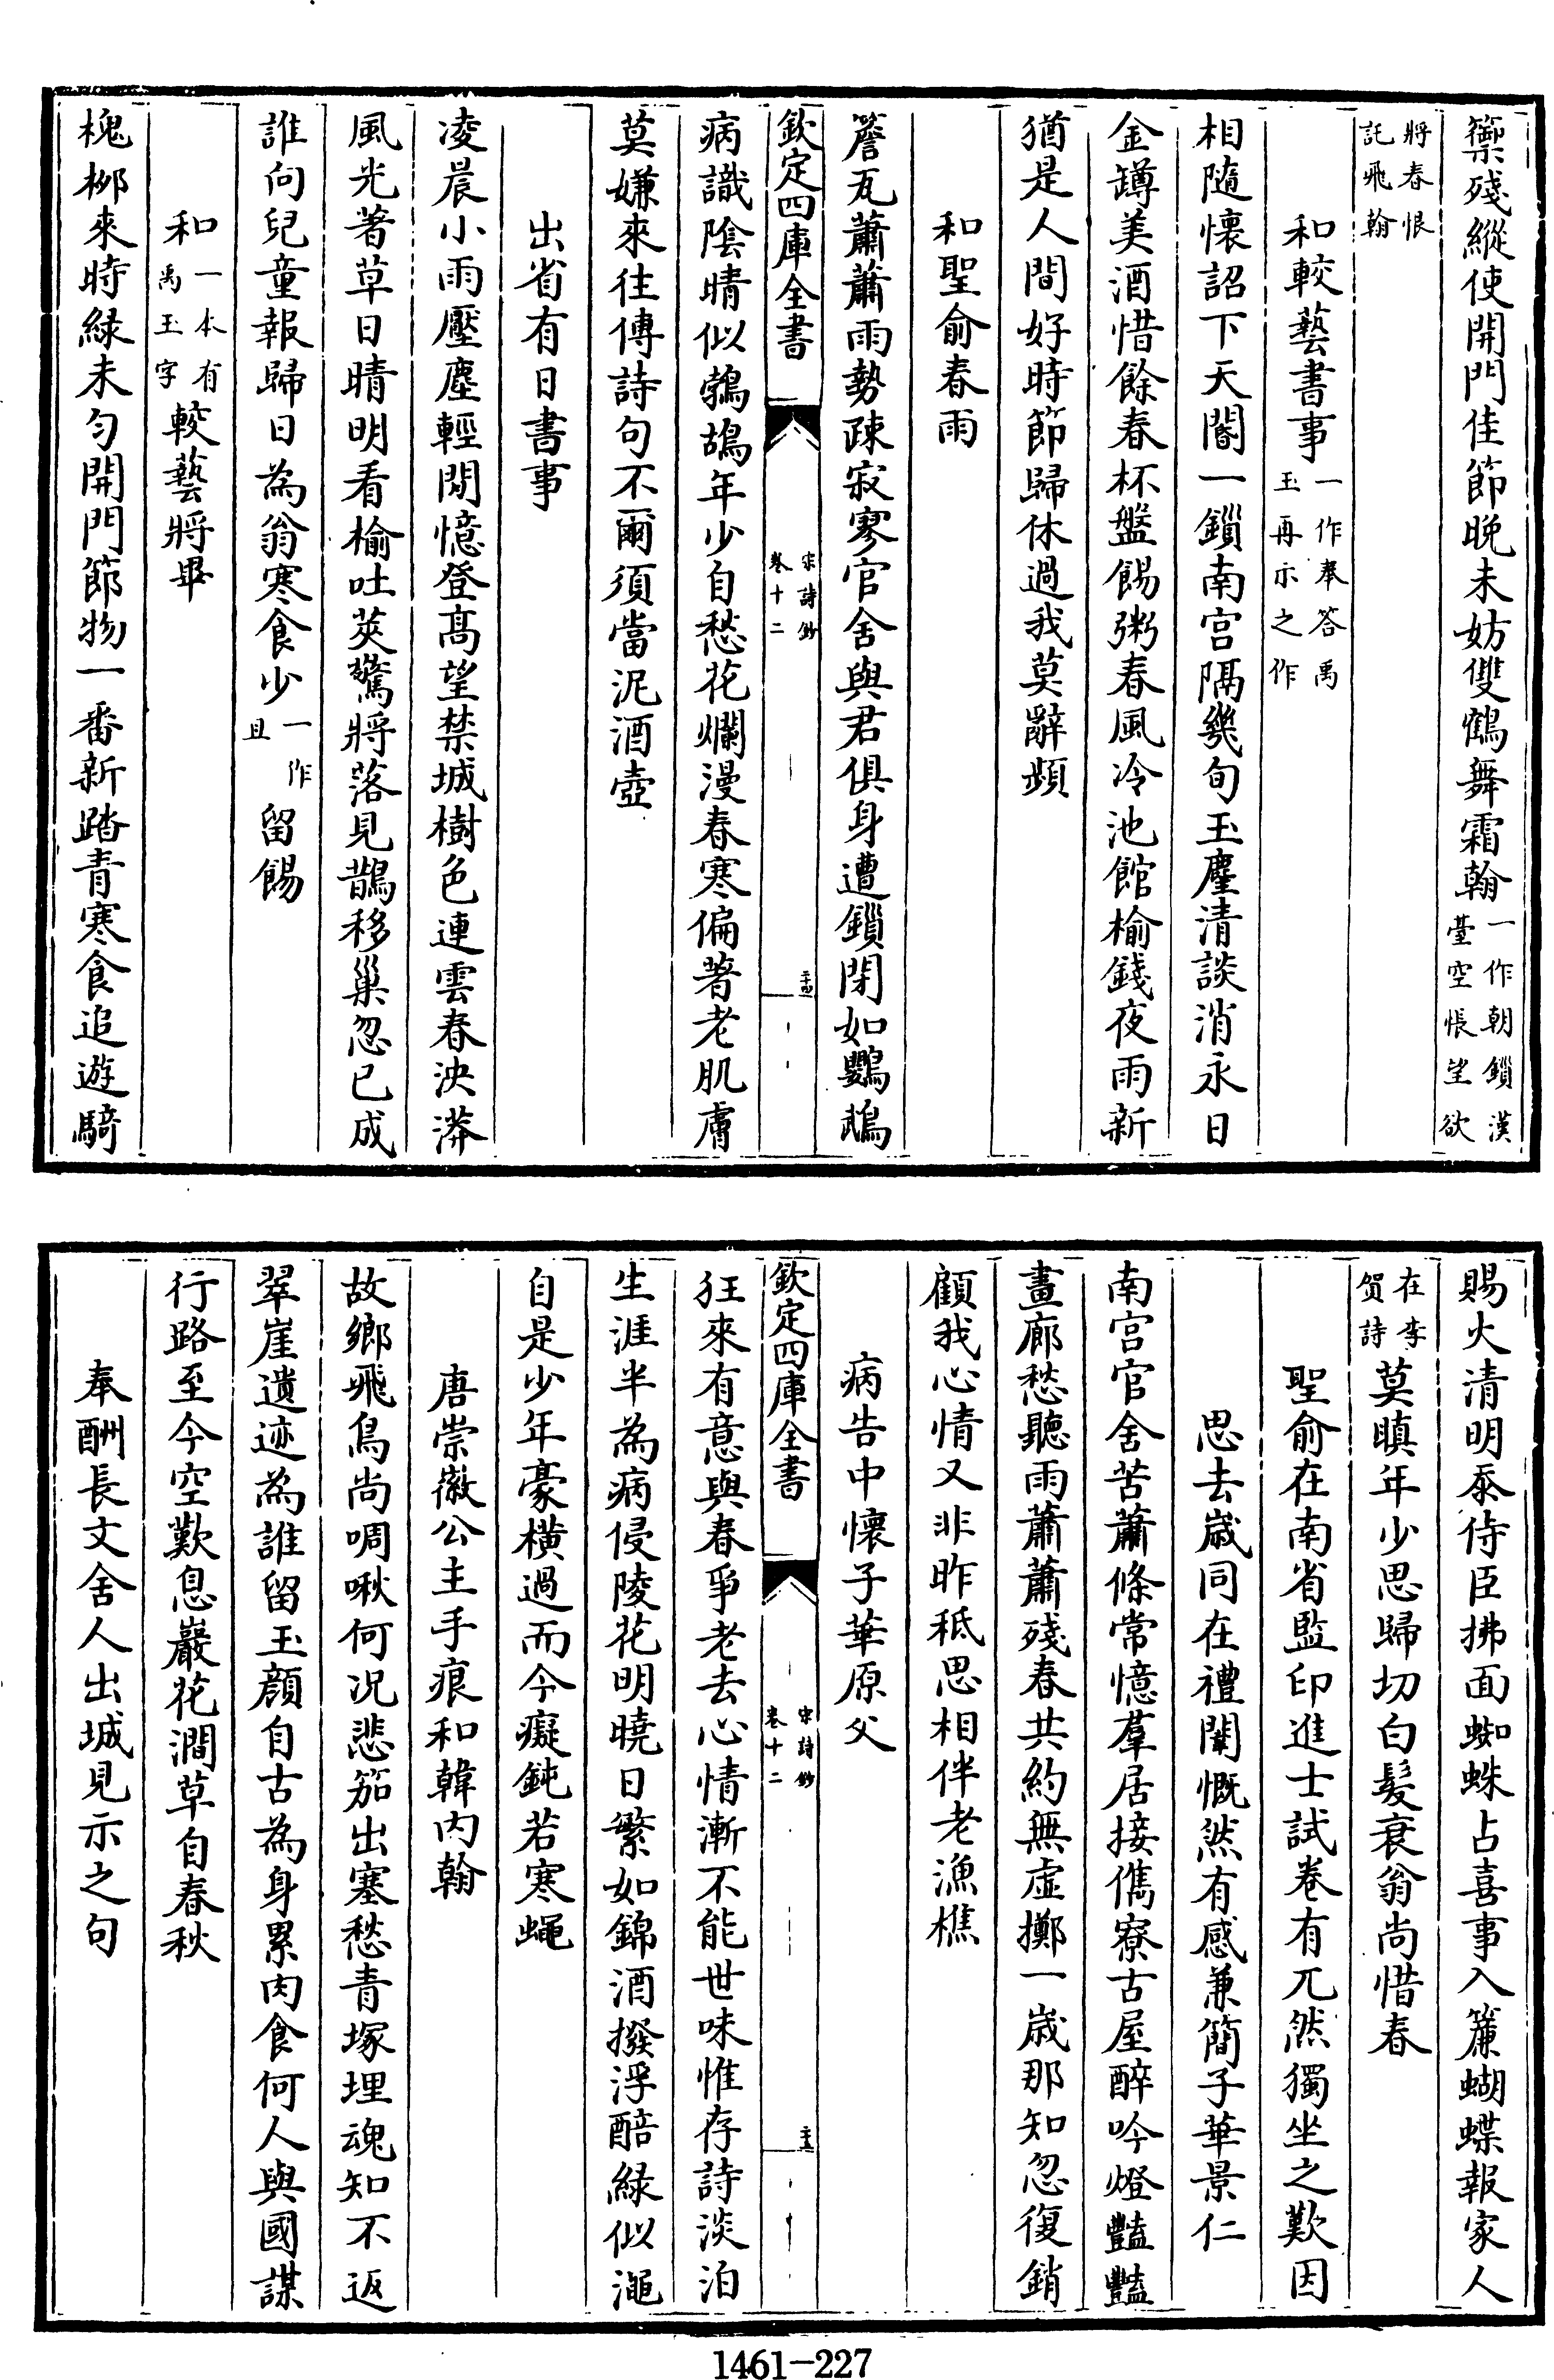 籞殘縱使開門佳節晚未妨雙鶴舞霜翰一作朝鎖漢臺空悵望欲
將春恨託飛翰
和較藝書事一作奉答禹玉再示之作
相隨懷詔下天閽一鎖南宮隔幾旬玉麈清談消永日
金罇美酒惜餘春杯盤餳粥春風冷池館榆錢夜雨新
猶是人間好時節歸休過我莫辭頻
和聖俞春雨
簷瓦蕭蕭雨勢疎寂寥官舍與君俱身遭鎖閉如鸚鵡
欽定四庫全書
宋詩鈔
卷十二
病識陰晴似鵓鴣年少自愁花爛漫春寒偏著老肌膚
莫嫌來往傳詩句不爾須當泥酒壺
出省有日書事
凌晨小雨壓塵輕閒憶登高望禁城樹色連雲春泱漭
風光著草日晴明看榆吐莢驚將落見鵲移巢忽已成
誰向兒童報歸日為翁寒食少一作且留餳
和一本有禹玉字較藝將畢
槐栁來時緑未勻開門節物一番新踏青寒食追遊騎
賜火清明忝侍臣拂面蜘蛛占喜事入簾蝴蝶報家人
在李賀詩莫嗔年少思歸切白髮衰翁尚惜春
聖俞在南省監印進士試卷有兀然獨坐之歎因
思去歲同在禮闈慨然有感兼簡子華景仁
南宮官舍苦蕭條常憶羣居接儁寮古屋醉吟燈豔豔
畫廊愁聽雨蕭蕭殘春共約無虛擲一歲那知忽復銷
顧我心情又非昨秪思相伴老漁樵
病告中懷子華原父
欽定四庫全書
宋詩鈔
卷十二
狂來有意與春爭老去心情漸不能世味惟存詩淡泊
生涯半為病侵陵花明曉日繁如錦酒撥浮醅緑似澠
自是少年豪橫過而今癡鈍若寒蠅
唐崇徽公主手痕和韓内翰
故鄉飛鳥尚啁啾何況悲笳出塞愁青塚埋魂知不返
翠崖遺迹為誰留玉顔自古為身累肉食何人與國謀
行路至今空歎息巖花澗草自春秋
奉酬長文舍人出城見示之句
1461-227